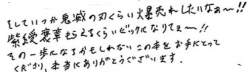 そしていつか鬼滅の刃くらい爆売れしたいなぁ〜!!
紫綬褒章もらえるくらいビックになりてぇ〜!!
その一歩になるかもしれないこの本をお手にとって
くださり、本当にありがとうございます。